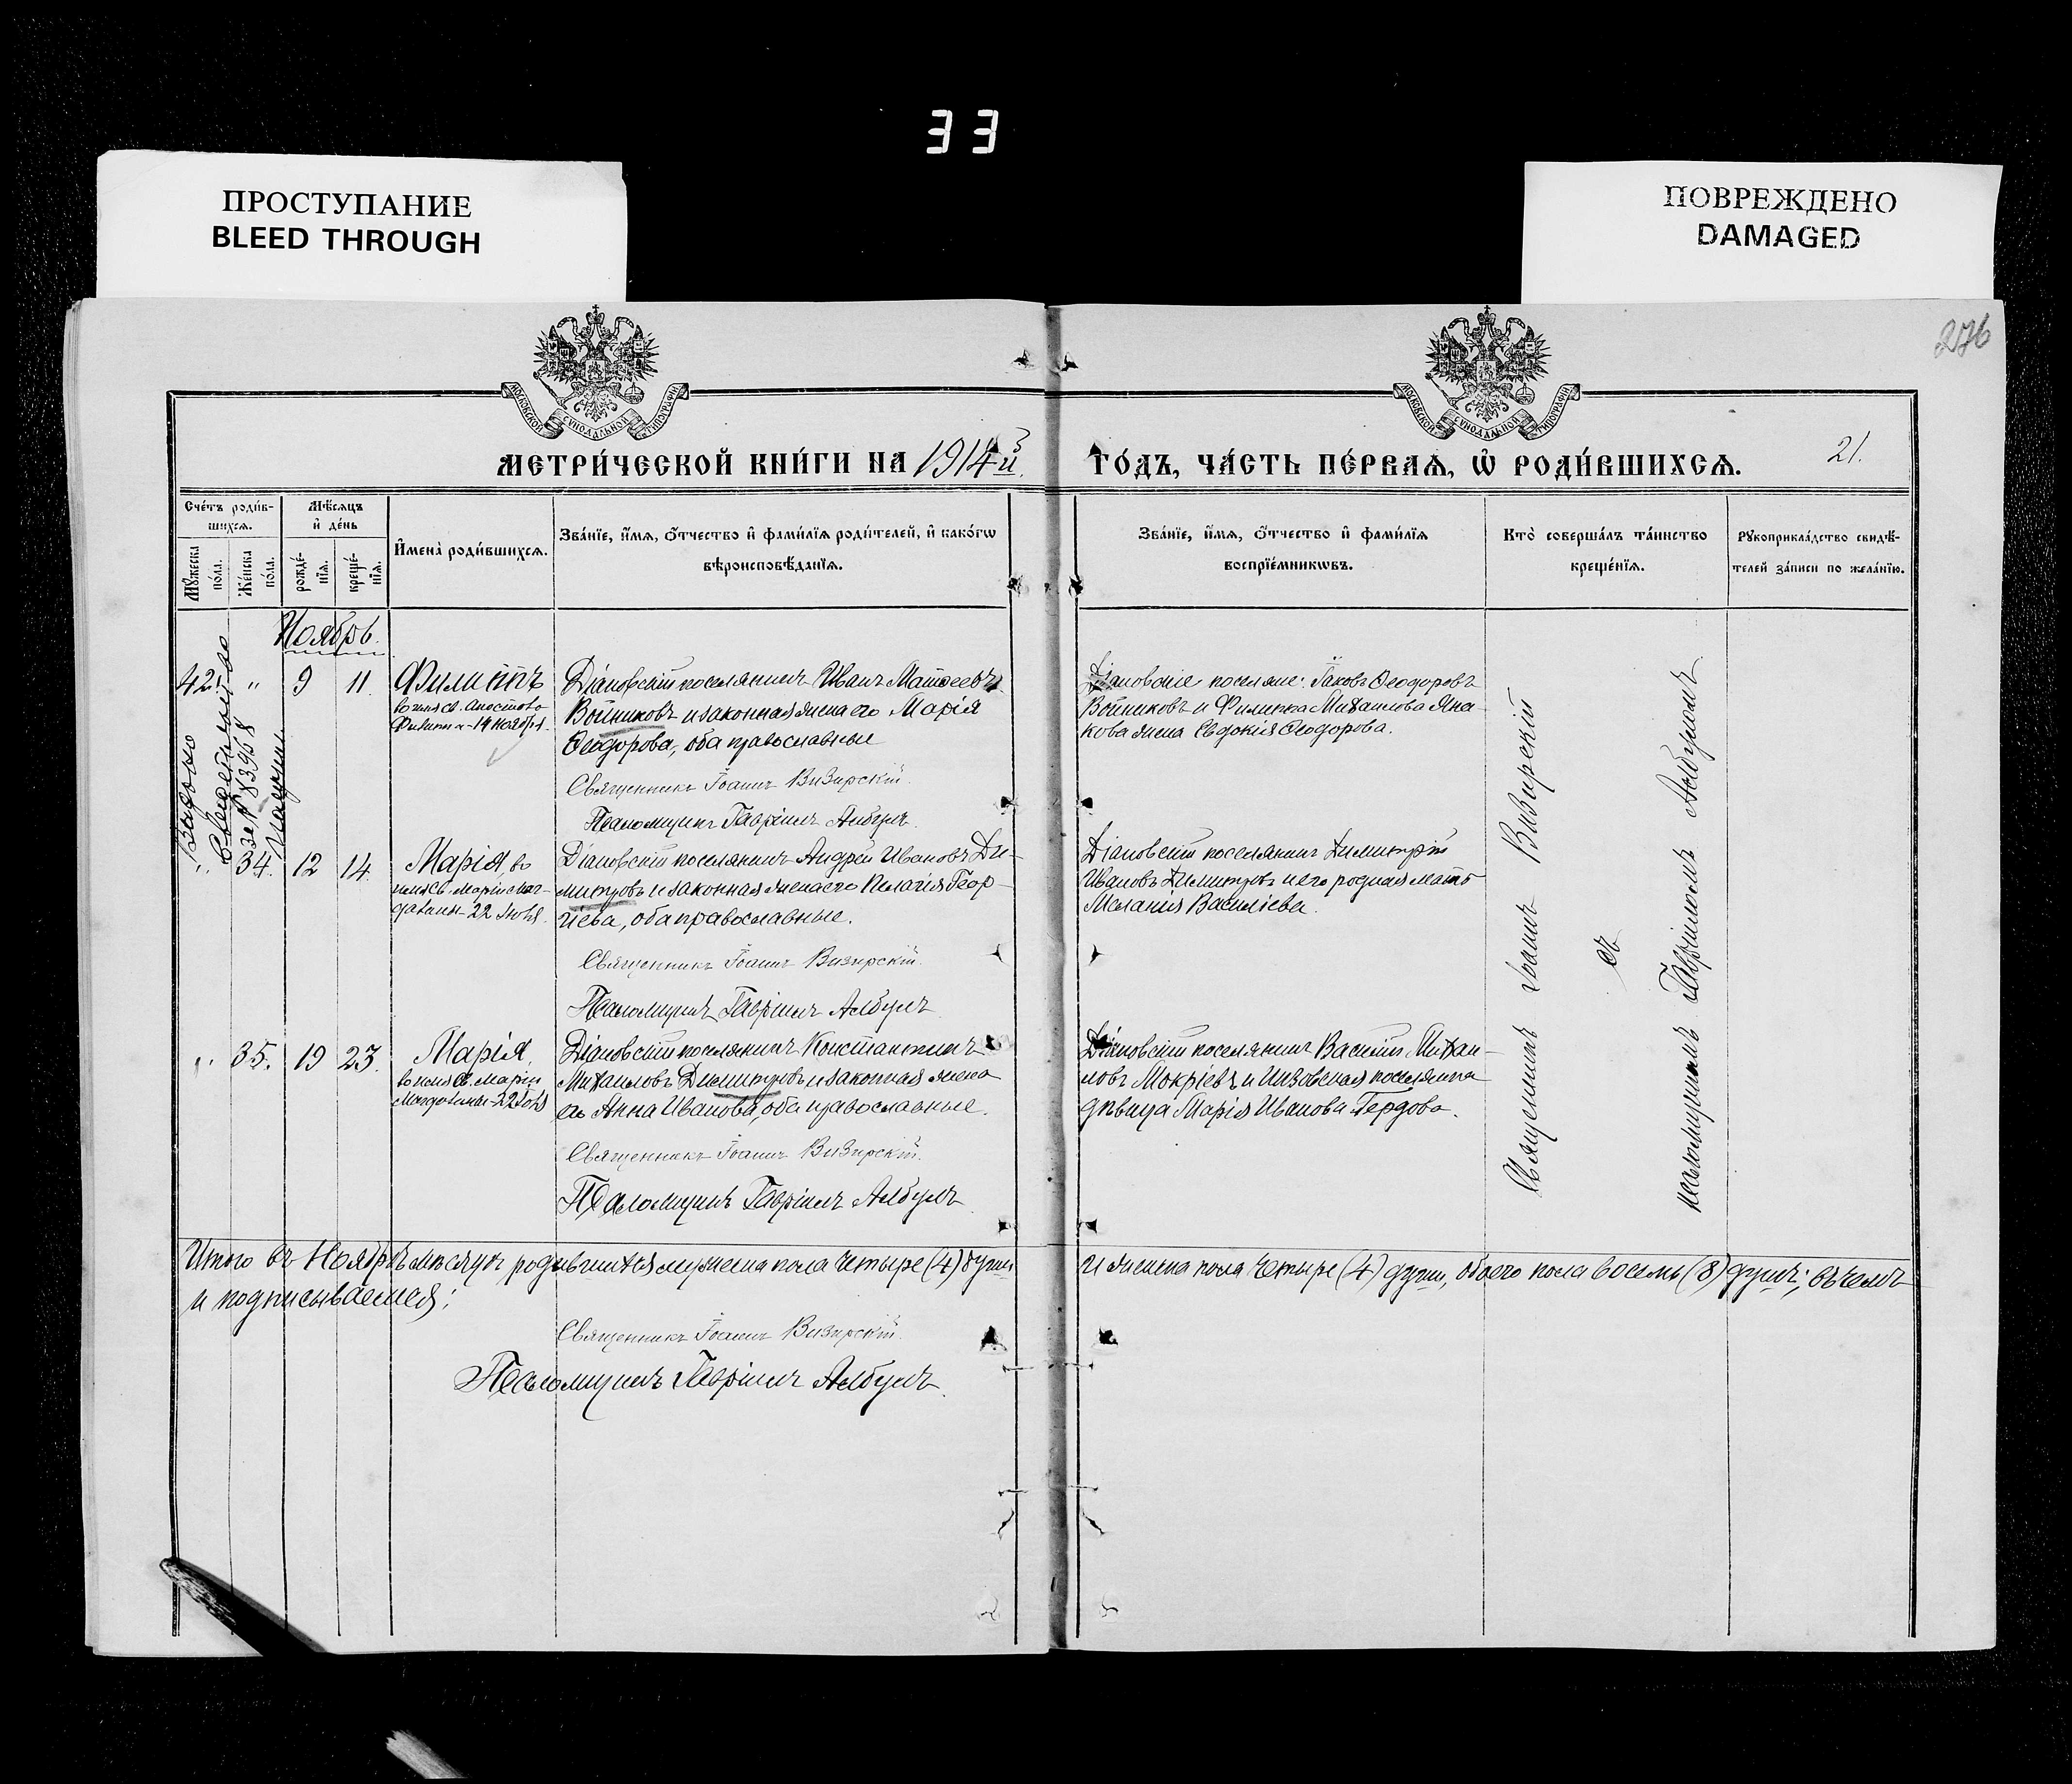 33
ПРОСТУПАНИЕ
BLEED THROUGH
ПОВРЕЖДЕНО
DAMAGED
276
МОСКОВСКОЙ СѴНОДАЛЬНОЙ ТИПОГРАФІИ
МОСКОВСКОЙ СѴНОДАЛЬНОЙ ТИПОГРАФІИ
МЕТРИ́ЧЕСКОЙ КНИ́ГИ НА 1914й
ГО́ДЪ, ЧА́СТЬ ПЕ́РВАѦ, Ѡ҆ РОДИ́ВШИХСѦ.
21.
Сче́тъ роди́в-
шихсѧ.
Мꙋ́жеска по́ла.
Же́нска по́ла.
Мѣ́сѧцъ
и҆ де́нь
рожде́-
нїѧ.
креще́-
нїѧ.
И҆мена̀ роди́вшихсѧ.
Зва́нїе, и҆́мѧ, ѻ҆́тчество и҆ фами́лїѧ роди́телей, и҆ како́гѡ
вѣроисповѣ́данїѧ.
Зва́нїе, и҆́мѧ, ѻ҆́тчество и҆ фами́лїѧ
воспрїе́мникѡвъ.
Кто̀ соверша́лъ та́инство
креще́нїѧ.
Рꙋкоприкла́дство свидѣ́-
телей за́писи по жела́нїю.
Ноябрь.
Выдано
свидѣтельство
за № 83968
42. " 9 11. Филиппъ
во имя св. Апостола
Филиппа - 14 ноября.
Діановскій поселянинъ Иванъ Матѳеевъ
Войниковъ и законная жена его Марія
Ѳеодорова, оба православные
Священникъ Іоаннъ Визирскій.
Псаломщикъ Гавріилъ Албулъ
Діановскіе поселяне: Іаковъ Ѳеодоровъ
Войниковъ и Филиппа Михаилова Яна-
кова жена Евдокія Ѳеодорова.
" 34. 12 14. Марія, во
имя св. Маріи Маг-
далины - 22 Іюля.
Діановскій поселянинъ Андрей Ивановъ Ди-
митровъ и законная жена его Пелагія Геор-
гіева, оба православные.
Священникъ Іоаннъ Визирскій.
Псаломщикъ Гавріилъ Албулъ
Діановскій поселянинъ Димитрій
Ивановъ Димитровъ и его родная мать
Меланія Василіева.
" 35. 19 23. Марія,
во имя св. Маріи
Магдалины - 22 Іюля
Діановскій поселянинъ Константинъ
Михаиловъ Димитровъ и законная жена
его Анна Иванова, оба православные.
Священникъ Іоаннъ Визирскій.
Псаломщикъ Гавріилъ Албулъ
Діановскій поселянинъ Василій Михаи-
ловъ Мокріевъ и поселянка
дѣвица Марія Иванова Гердова.
Священникъ Іоаннъ Визирскій
съ
псаломщикомъ Гавріиломъ Албуломъ
Итого въ Ноябрѣ мѣсяцѣ родившихся мужеска пола четыре (4) души
и женска пола четыре (4) души, обоего пола восемь (8) душъ; въ чемъ
и подписываемся:
Священникъ Іоаннъ Визирскій.
Псаломщикъ Гавріилъ Албулъ.